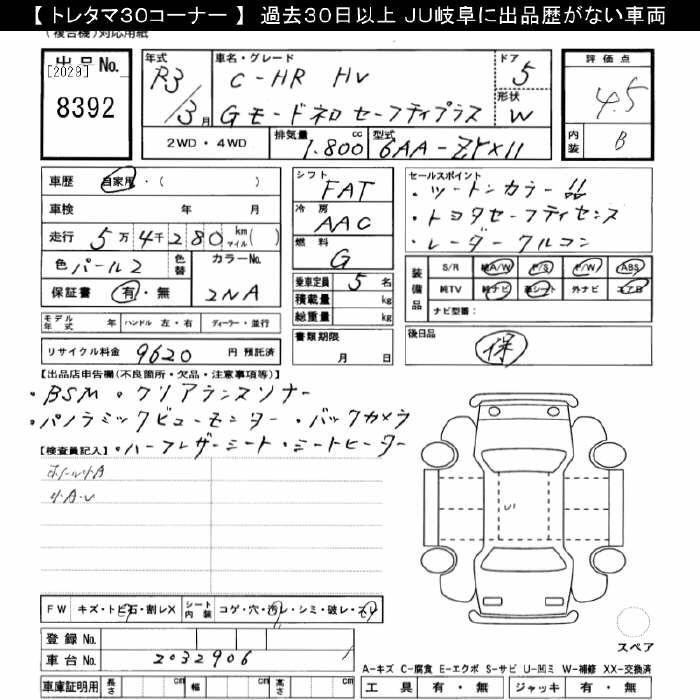 【 トレタマ30コーナー 】 過去30日以上 JU岐阜に出品歴がない車両
(複合機)対応用紙
出品No.
[2029]
8392
年式
R3/3月
車名・グレード
C-HR HV
Gモードネロ セーフティプラス
ドア
5
形状
W
評価点
4.5
内装
B
2WD・4WD
排気量
1.800 cc
型式
6AA-ZYX11
車歴
自家用・( )
車検 年 月
走行 5万4千280 km マイル( )
色 パール2
色替
カラーNo.
2NA
保証書 有・無
モデル年式 年 ハンドル 左・右 ディーラー・並行
リサイクル料金 9620 円 預託済
シフト
FAT
冷房
AAC
燃料
G
乗車定員 5 名
積載量 kg
総重量 kg
書類期限
月 日
セールスポイント
・ツートンカラー
・トヨタセーフティセンス
・レーダークルコン
装備品
S/R 純A/W P/S P/W ABS
純TV 純ナビ 革シート 外ナビ エアB
ナビ型番:
後日品
保
【出品店申告欄(不良箇所・欠品・注意事項等)】
・BSM ・クリアランスソナー
・パノラミックビューモニター ・バックカメラ
・ハーフレザーシート ・シートヒーター
【検査員記入】
ホイール小A
小A・U
U1
FW キズ・トビ石・割レX シート内装 コゲ・穴・汚レ・シミ・破レ・スレ
登録No.
車台No. 2032906
車庫証明用 長さ cm 幅 cm 高さ cm
スペア
A-キズ C-腐食 E-エクボ S-サビ U-凹ミ W-補修 XX-交換済
工具 有・無 ジャッキ 有・無